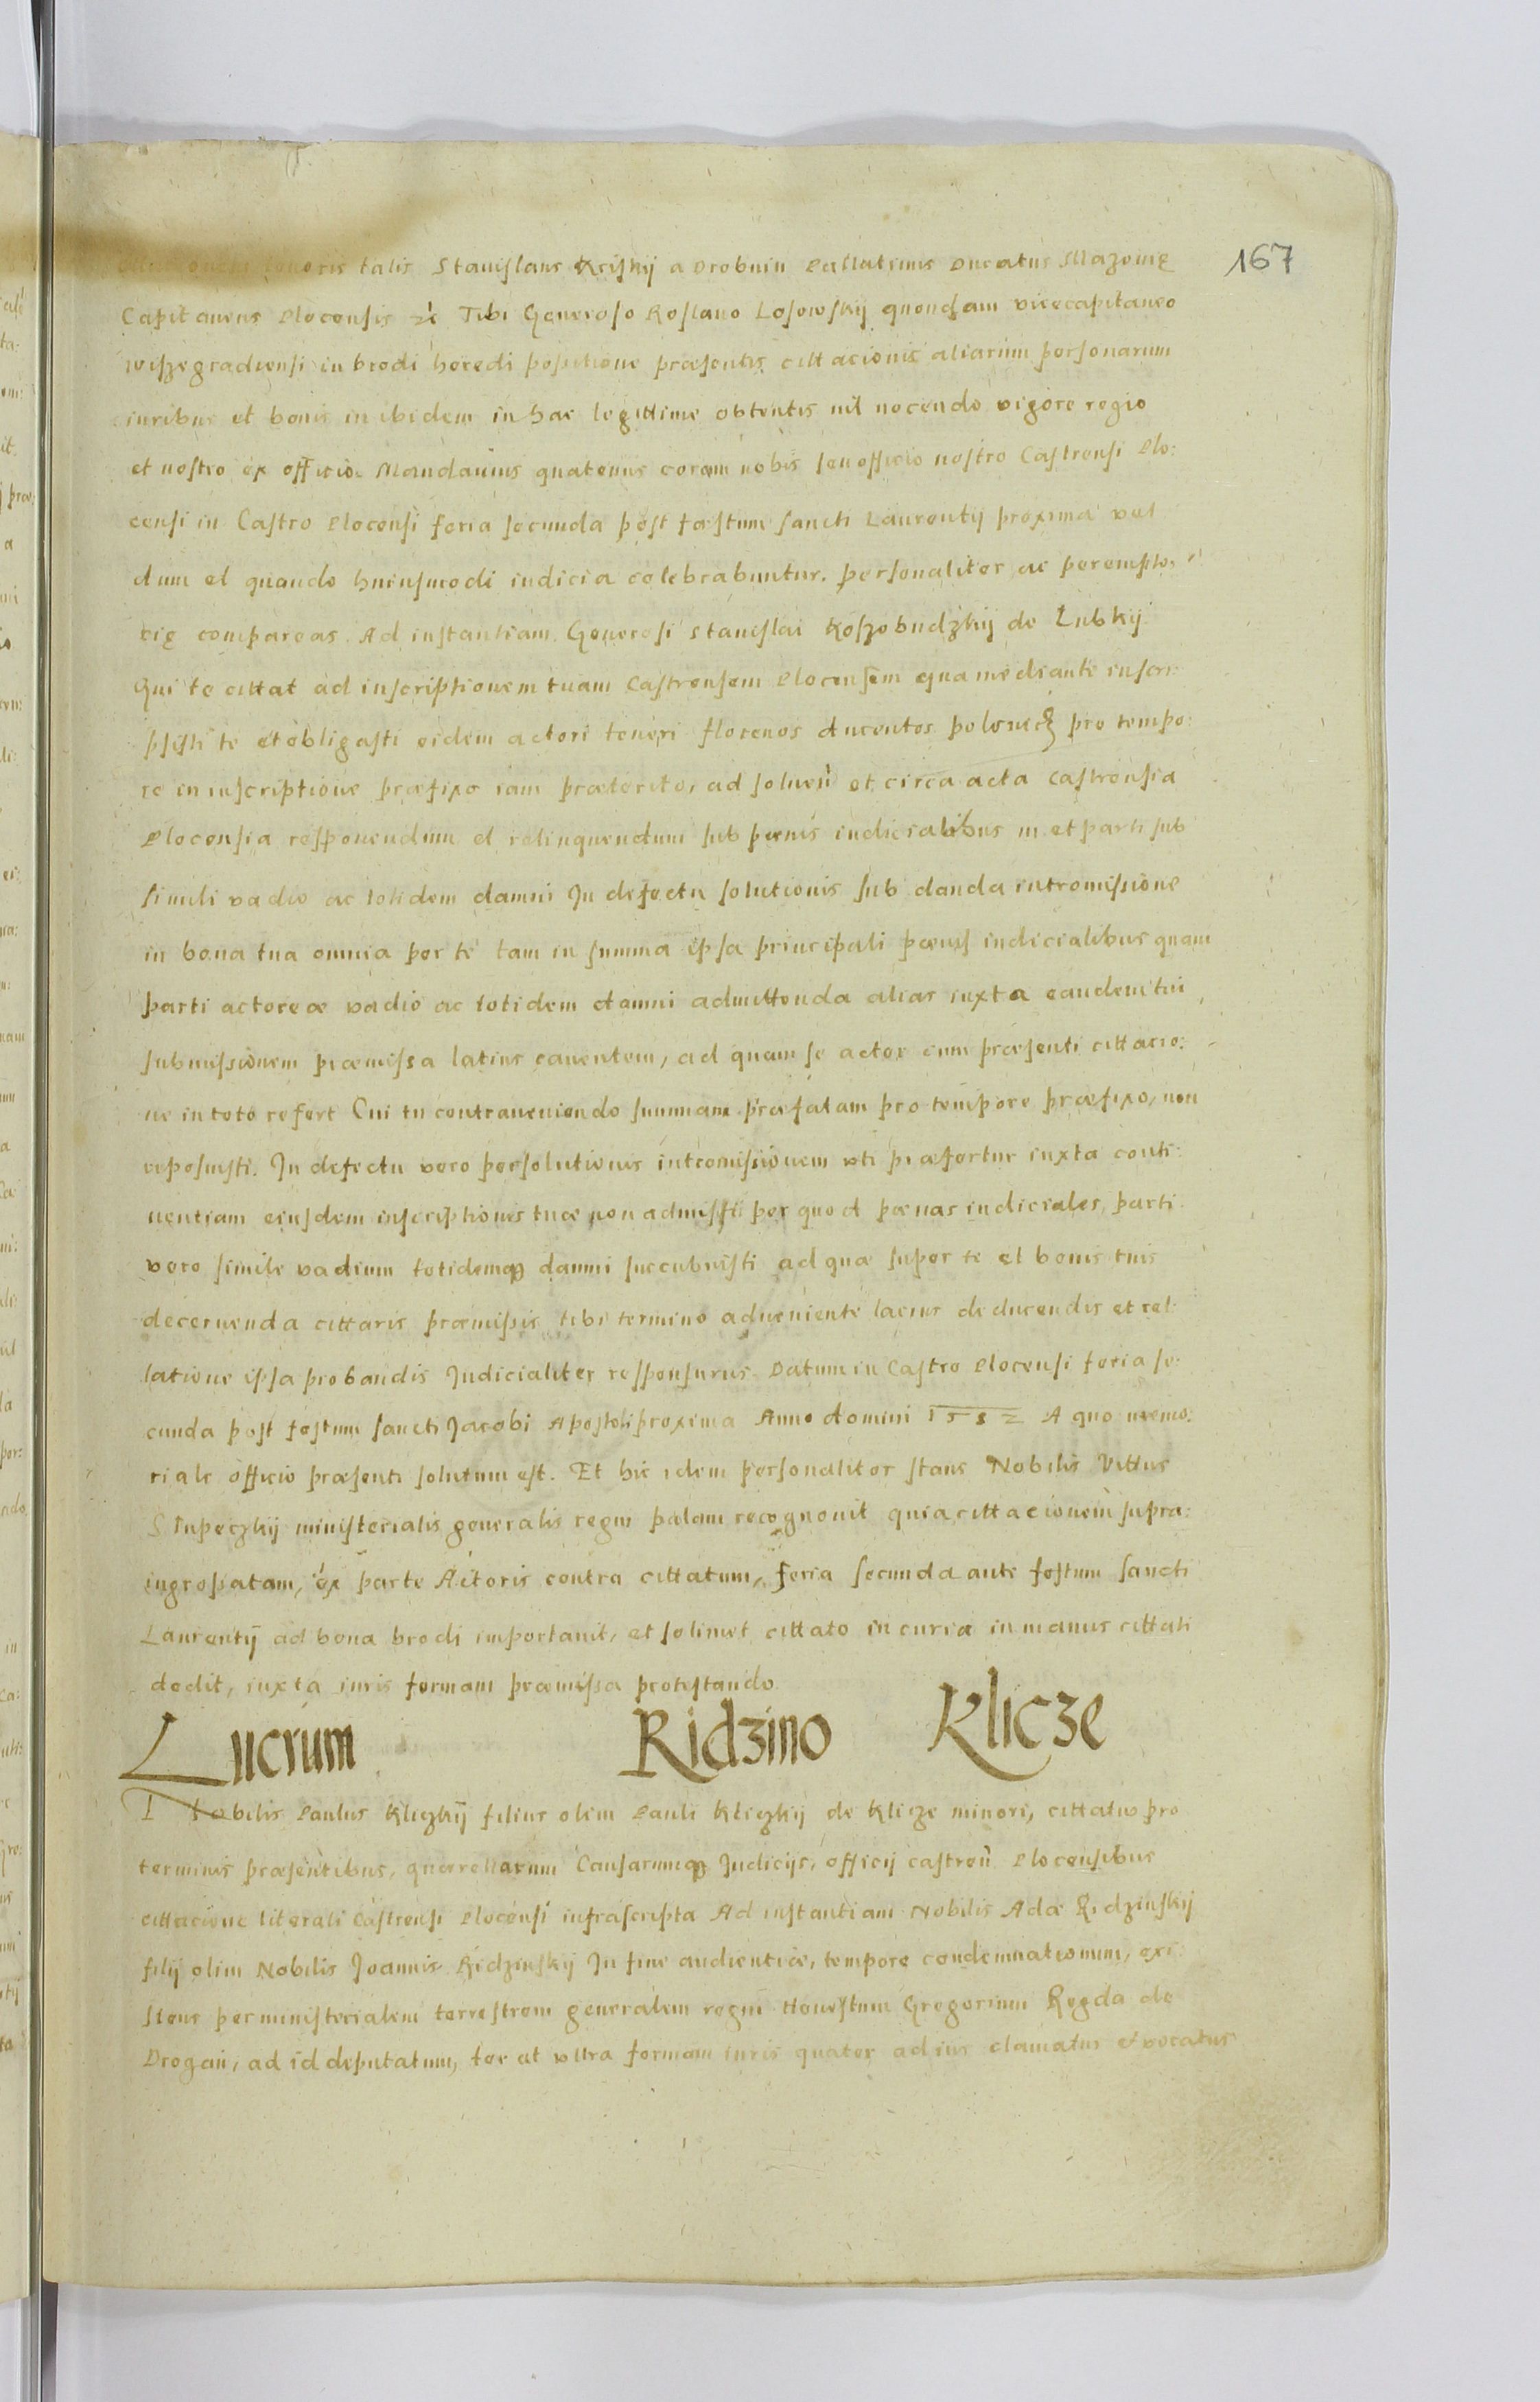 tenoris talis Stanislaus Kriskij a Drobnin Pallatinus Ducatus Mazonię
167
Capitaneus Plocensis Tibi Generoso Roslano Losowskij quondam vicecapitaneo
wiszegradiensi in brodi heredi positione præsentis cittacionis aliarum personarum
iuribus et bonis in ibidem in hac legittime obtentis nil nocendo vigore regio
et nostro ex officio Mandamus quatenus coram nobis seu officio nostro Castrensi Plo:
censi in Castro Plocensi feria secunda post fæstum sancti Laurentij proxima vel
dum et quando huiusmodi iudicia celebrabuntur. personaliter ac perempto:
rię compareas. Ad instantiam Generosi Stanislai Koszobudzkij de Lubkij
Qui te cittat ad inscriptionem tuam Castrensem Plocensem qua mediante inscri
psisti te et obligasti eidem actori teneri florenos ducentos polonic pro tempo:
re in inscriptione præfixo iam præterito, ad soluen et circa acta castrensia
Plocensia responendum et relinquendum sub pœnis iudicialibus m et parti sub
simili vadio ac totidem damni In defectu solutionis sub danda intromissione
in bona tua omnia per te tam in summa ipsa principali pœnis iudicialibus quam
parti actoreæ vadio ac totidem damni admittenda alias iuxta eandem tui
submissionem præmissa latius caventem, ad quam se actor cum præsenti cittacio:
ne in toto refert Cui tu contraueniendo summam præfatam pro tempore præfixo, non
reposuisti. In defectu vero persolutionis intromissionem uti præfertur iuxta conti:
nentiam eiusdem inscriptionis tuæ non admisisti per quod pœnas iudiciales, parti
vero simile vadium totidemq damni succubuisti ad quæ super te et bonis tuis
decernenda cittaris præmissis tibi termino adueniente lacius deducendis et rel
latione ipsa probandis Judicialiter responsurus Datum in Castro Plocensi feria se:
cunda post festum sancti Jacobi Apostoli proxima Anno domini 1582 A quo memo:
riale officio præsenti solutum est. Et hic idem personaliter stans Nobilis Vittus
Slupeczkij ministerialis generalis regni palam recognouit quia cittacionem supra:
ingrossatam, ex parte Actoris contra cittatum, feria secunda ante festum sancti
Laurentij ad bona brodi importauit, et solimet cittato in curia in manus cittati
dedit, iuxta iuris formam præmissa protestando
Lucrum Ridzino Klicze
Nobilis Paulus Kliczkij filius olim Pauli Kliczkij de Klicze minori, cittatus pro
terminis præsentibus, querellarum Causarumq Judicijs, officij castren Plocensibus
cittacione literali Castrensi Plocensi infrascripta Ad instantiam Nobilis Adæ Ridzinskij
filij olim Nobilis Joannis Ridzinskij In fine audientiæ, tempore condemnationum, exi
stens per ministerialem terrestrem generalem regni Honestum Gregorium Rogda de
Drogan, ad id deputatum, ter et vltra formam iuris quater ad ius clamatus et vocatus